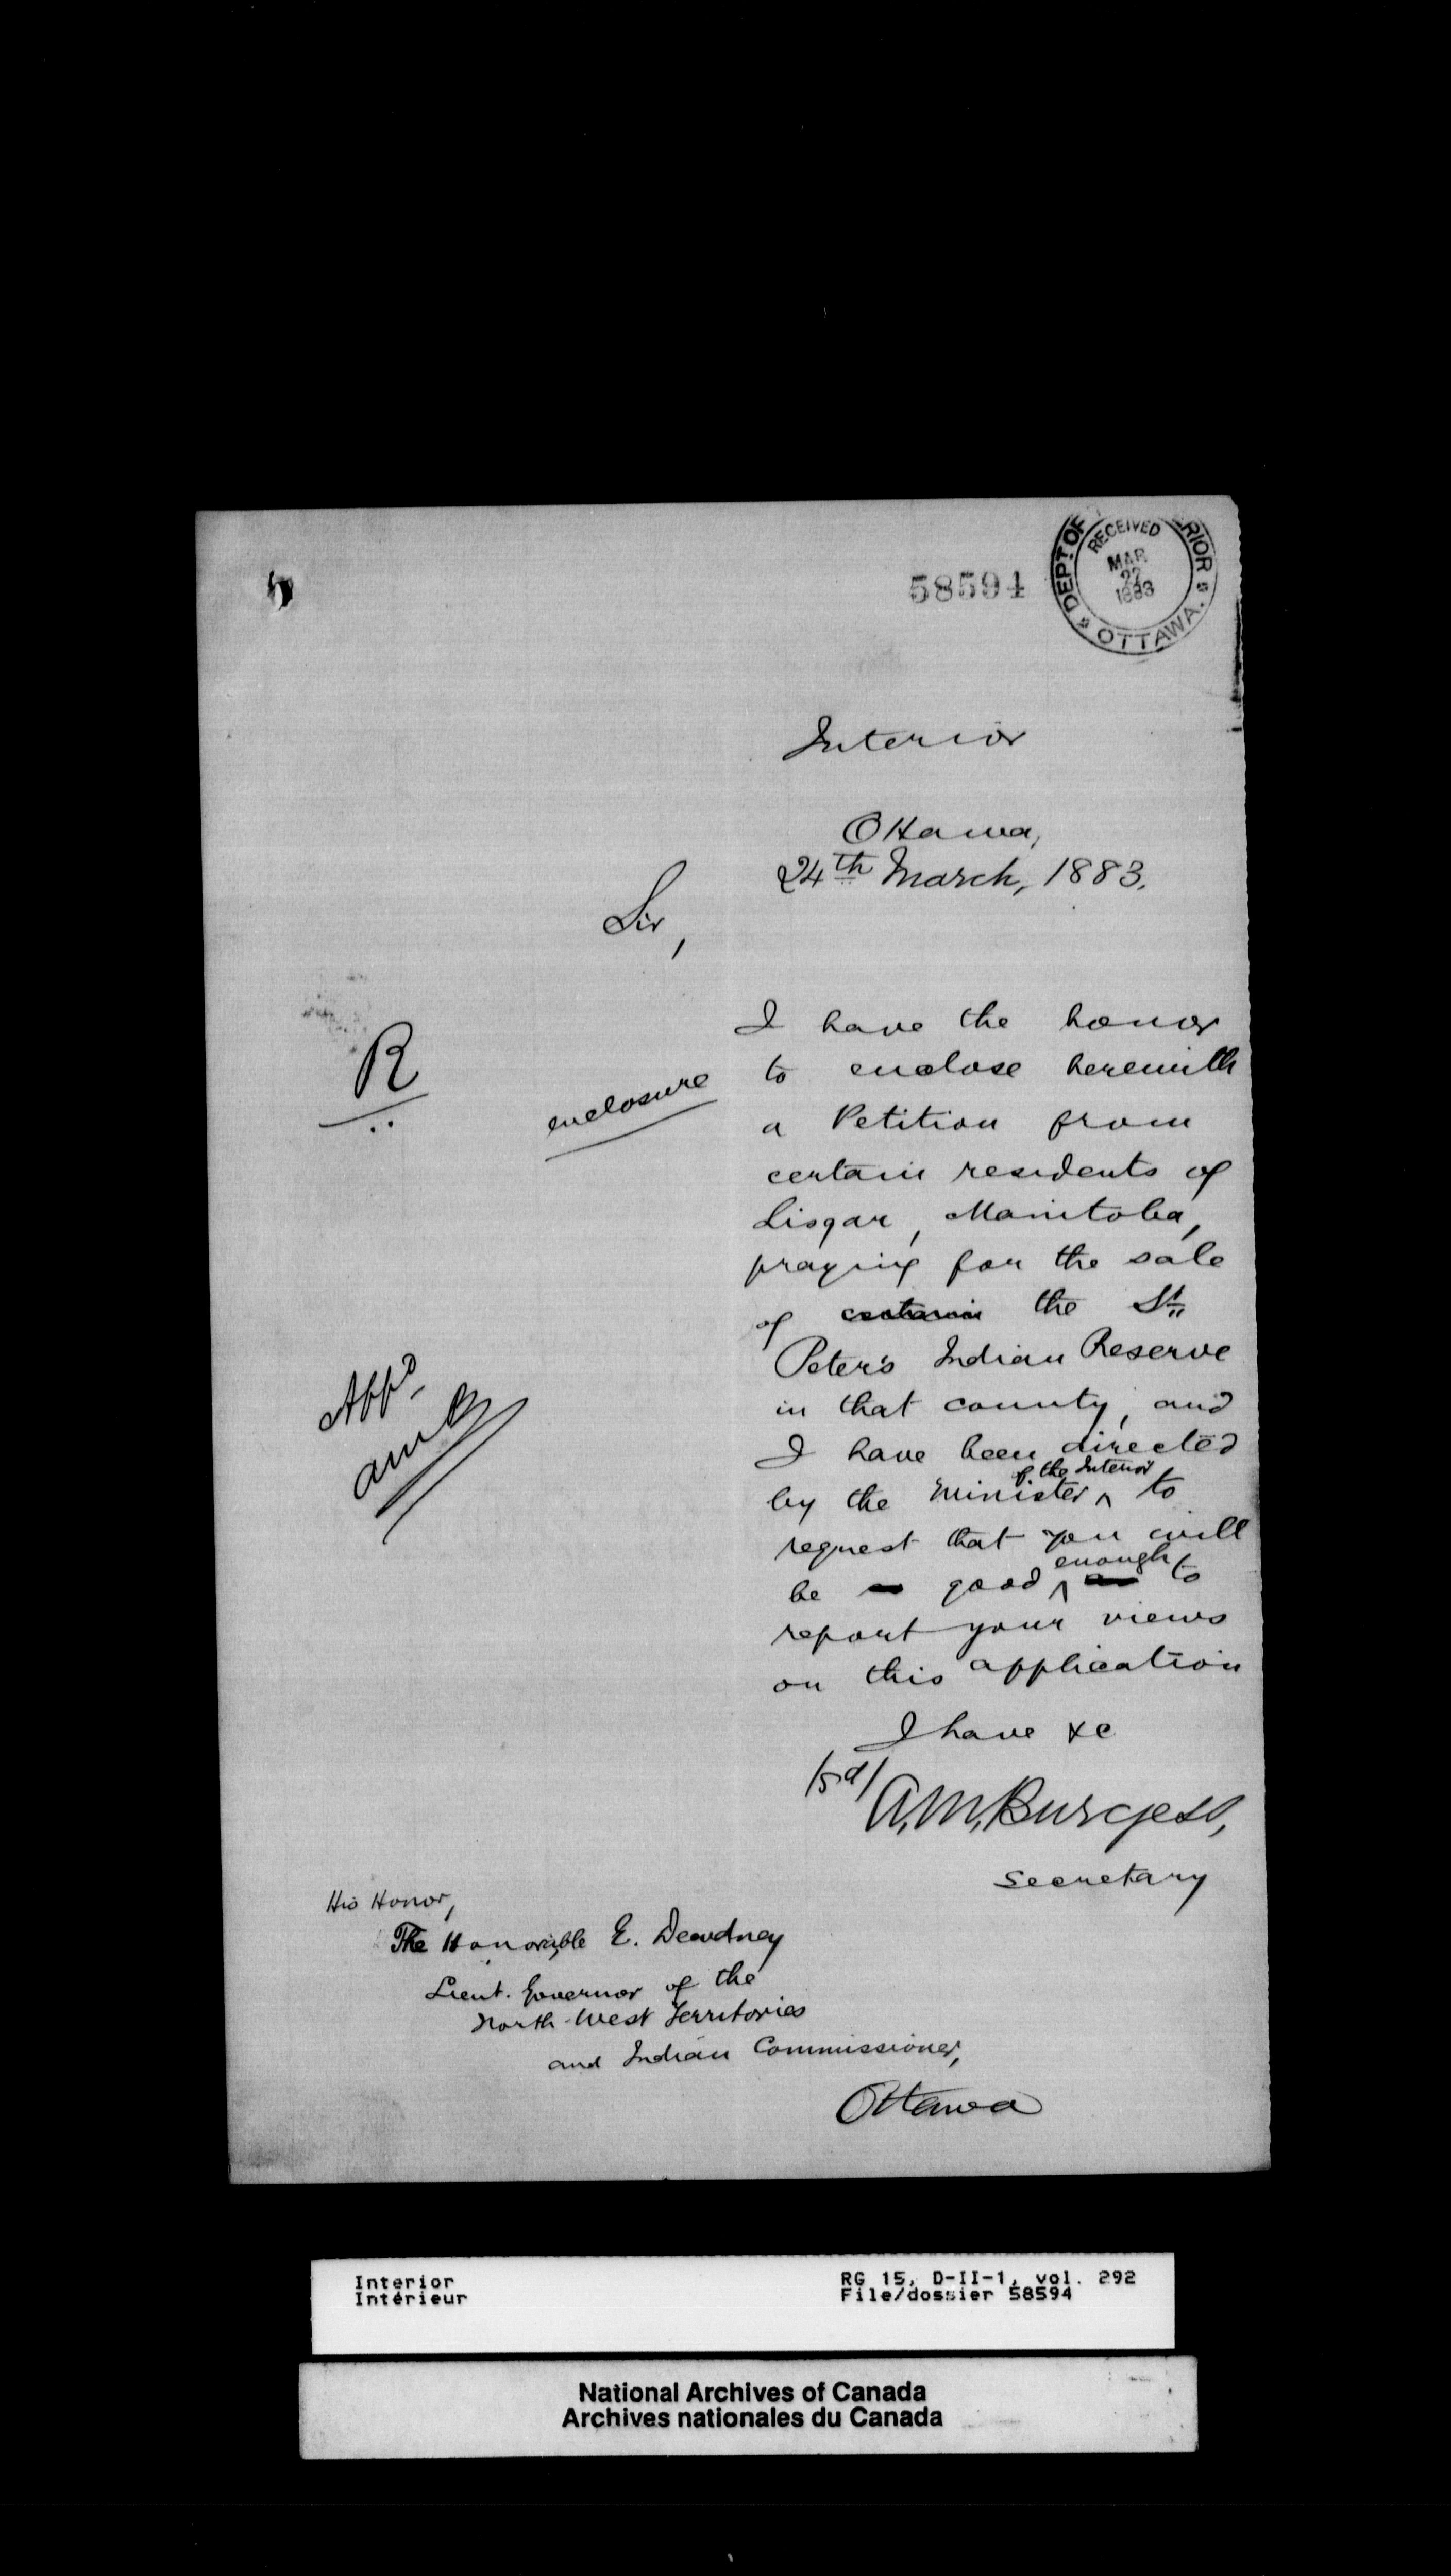 58594
DEPT OF RIOR
RECEIVED
MAR
27
1883
OTTAWA.
Interior
Ottawa,
24th March, 1883.
Sir,
I have the honor
to enclose herewith
enclosure
R
a Petition from
certain residents of
Lisgar, Manitoba,
praying for the sale
of certain the St.
Peter's Indian Reserve
in that county, and
Appd
AMB
I have been directed
of the Interior
by the Minister ^ to
request that you will
enough
be good ^ to
report your views
on this application
I have &c
/sd/ A.M. Burgess,
Secretary
His Honor,
The Honorable E. Dewdney
Lieut. Governor of the
North-West Territories
and Indian Commissioner,
Ottawa
Interior RG 15, D-II-1, vol. 292
Intérieur File/dossier 58594
National Archives of Canada
Archives nationales du Canada